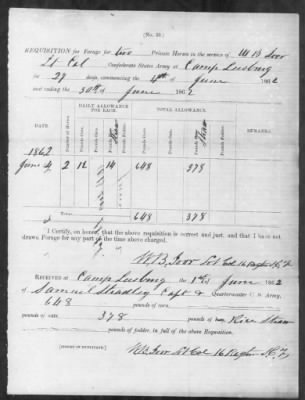 (No. 33.)
REQUISITION for Forage for two Private Horses in the service of W B Ivor
Lt Col Confederate States Army at Camp Leesburg
for 27 days, commencing the 4th of June 1862
and ending the 30th of June 1862
DAILY ALLOWANCE FOR EACH. TOTAL ALLOWANCE.
DATE. Number of Horses. Pounds Corn. Pounds Straw Pounds Corn. Pounds Straw REMARKS.
1862
June 4 2 12 14 648 378
Total 648 378
I Certify, on honor, that the above requisition is correct and just, and that I have not
drawn Forage for any part of the time above charged.
W. B. Ivor Lt Col 16
RECEIVED at Camp Leesburg the 1st of June 1862
of Samuel Stradley Capt & Quartermaster C. S. Army,
648 pounds of corn,
pounds of oats, 378 pounds of hay, Rice Straw
pounds of fodder, in full of the above Requisition.
[SIGNED IN DUPLICATE.] W B Ivor Lt Col 16